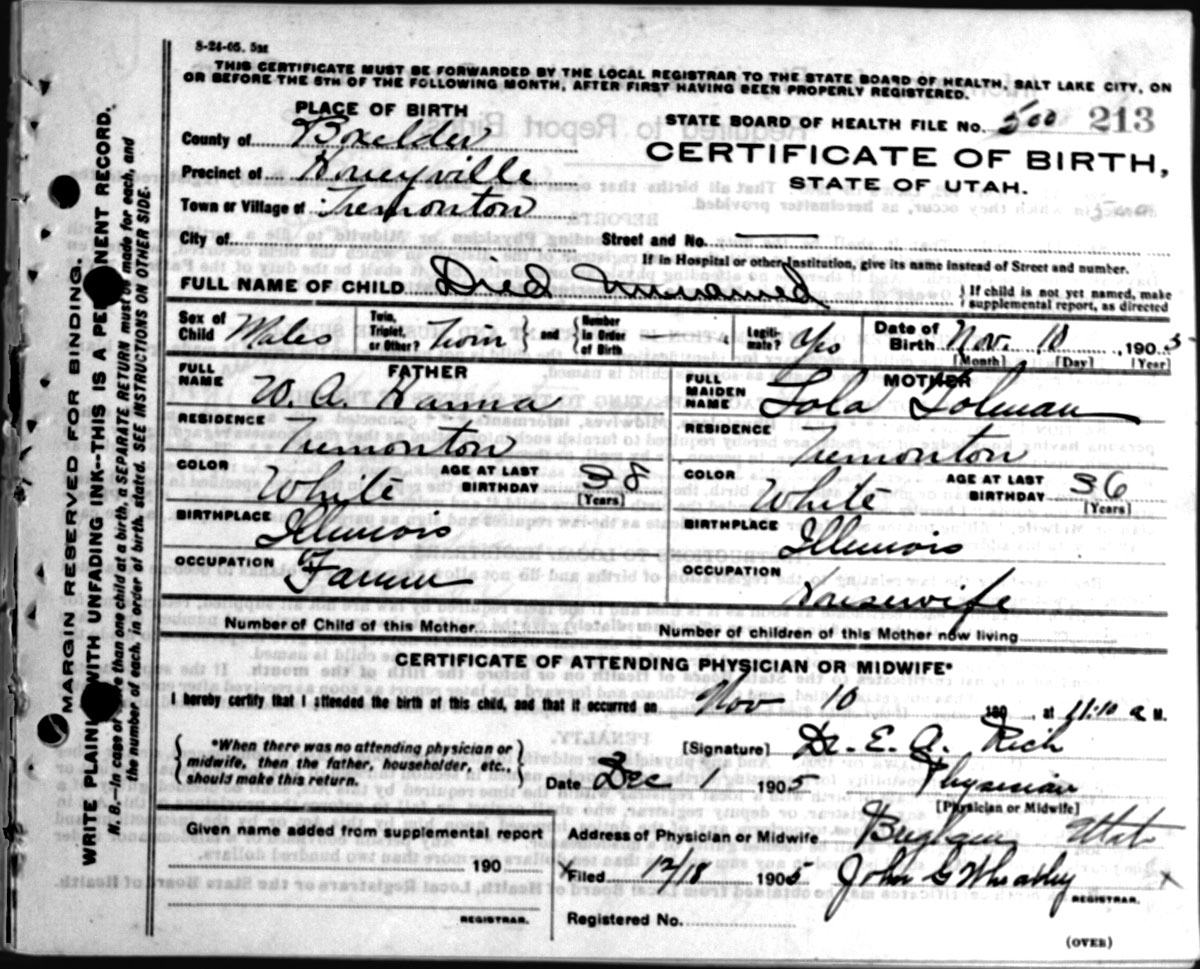 8-24-05. 5M
THIS CERTIFICATE MUST BE FORWARDED BY THE LOCAL REGISTRAR TO THE STATE BOARD OF HEALTH, SALT LAKE CITY, ON
OR BEFORE THE 5TH OF THE FOLLOWING MONTH, AFTER FIRST HAVING BEEN PROPERLY REGISTERED.
PLACE OF BIRTH
STATE BOARD OF HEALTH FILE No. 500 213
County of Boxelder
CERTIFICATE OF BIRTH,
STATE OF UTAH.
Precinct of Honeyville
Town or Village of Tremonton
500
City of
Street and No.
If in Hospital or other Institution, give its name instead of Street and number.
FULL NAME OF CHILD Died Unnamed
If child is not yet named, make
supplemental report, as directed
Sex of Child Males
Twin, Triplet, or Other? Twin and Number in Order of Birth
Legitimate? Yes
Date of Birth Nov. 10, 1905
[Month] [Day] [Year]
FATHER
FULL NAME W. A. Hanna
RESIDENCE Tremonton
COLOR White AGE AT LAST BIRTHDAY 38
[Years]
BIRTHPLACE Illinois
OCCUPATION Farmer
MOTHER
FULL MAIDEN NAME Lola Tolman
RESIDENCE Tremonton
COLOR White AGE AT LAST BIRTHDAY 36
[Years]
BIRTHPLACE Illinois
OCCUPATION Housewife
Number of Child of this Mother
Number of children of this Mother now living
CERTIFICATE OF ATTENDING PHYSICIAN OR MIDWIFE*
I hereby certify that I attended the birth of this child, and that it occurred on Nov 10 190 at 11:10 a M.
*When there was no attending physician or
midwife, then the father, householder, etc.,
should make this return.
[Signature] Dr. E. A. Rich
Date Dec 1 1905 Physician
[Physician or Midwife]
Given name added from supplemental report
190
REGISTRAR.
Address of Physician or Midwife Brigham Utah
Filed 12/18 1905 John G Wheatley
REGISTRAR.
Registered No.
(OVER)
MARGIN RESERVED FOR BINDING.
WRITE PLAINLY WITH UNFADING INK--THIS IS A PERMANENT RECORD.
N. B.--In case of more than one child at a birth, a SEPARATE RETURN must be made for each, and
the number of each, in order of birth, stated. SEE INSTRUCTIONS ON OTHER SIDE.